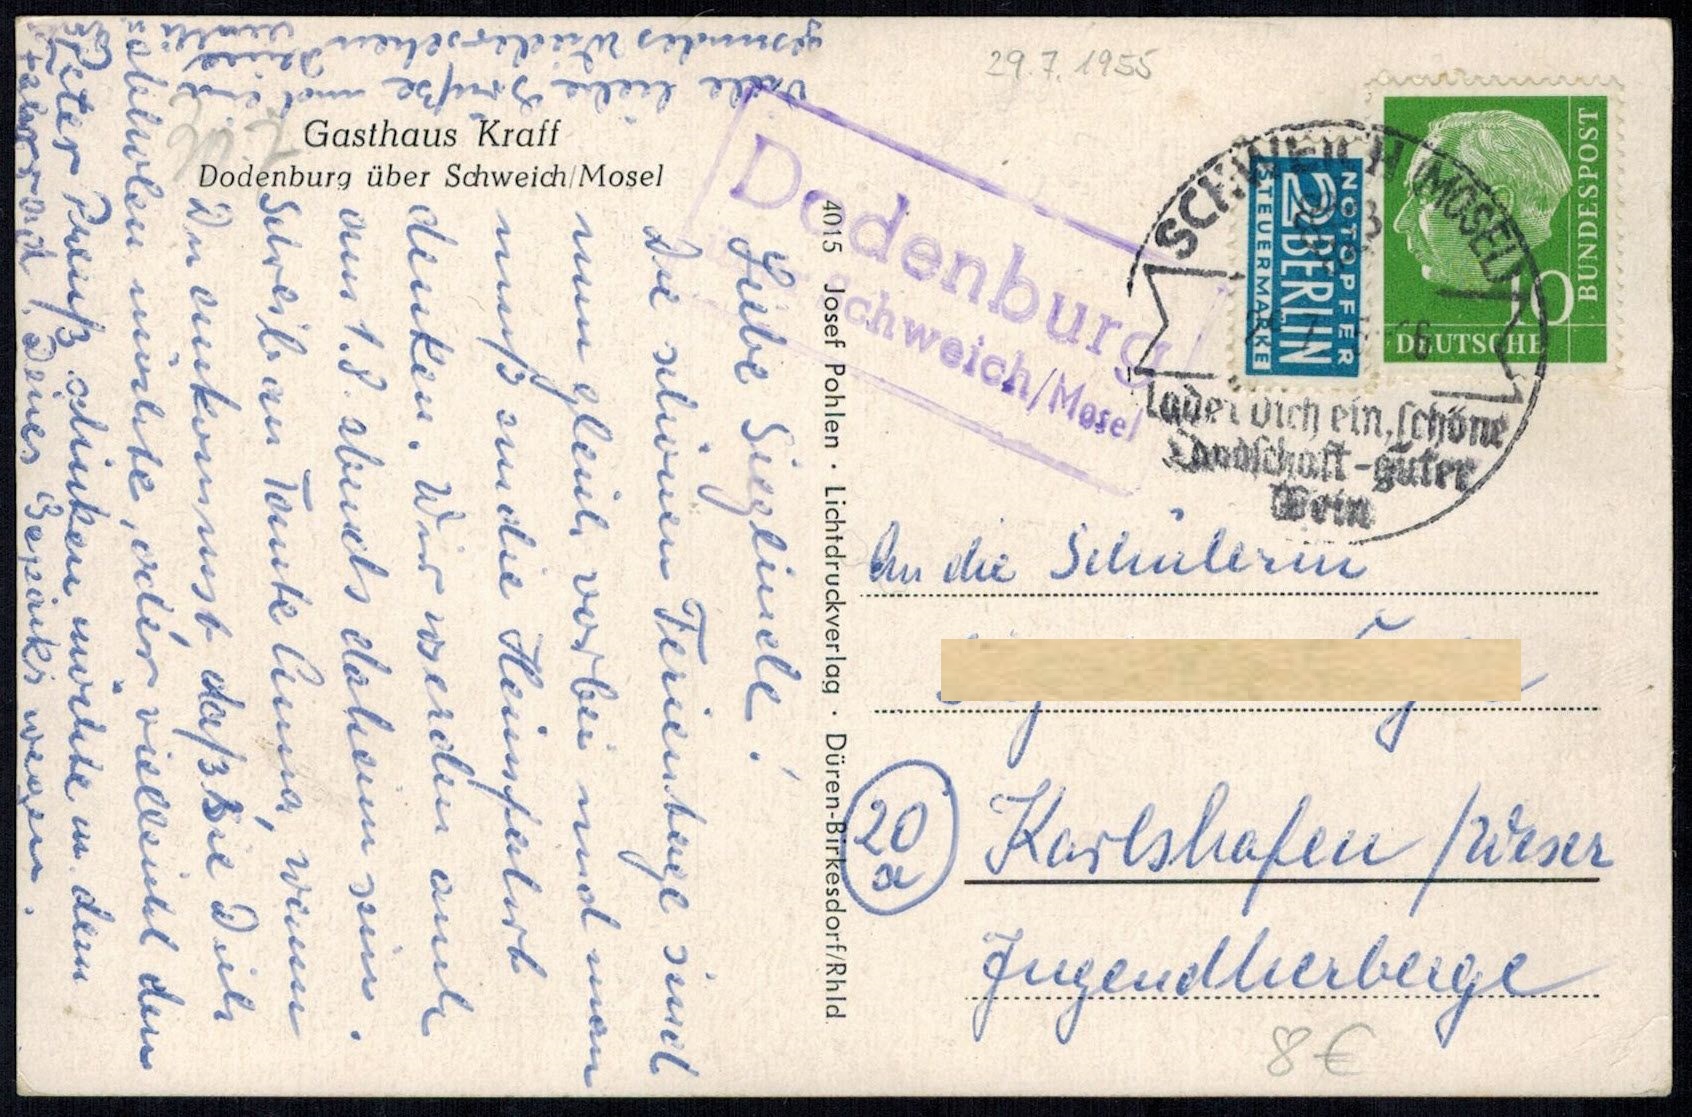 29.7.1955
Gasthaus Kraff
Dodenburg über Schweich/Mosel
Dodenburg
Schweich/Mosel
SCHWEICH (MOSEL)
ladet Dich ein, schöne
Landschaft - guter
Wein
NOTOPFER
2 BERLIN
STEUERMARKE
BUNDESPOST
10
DEUTSCHE
4015 Josef Pohlen · Lichtdruckverlag · Düren-Birkesdorf/Rhld
Liebe Sieglinde!
Die schönen Ferientage sind
nun gleich vorbei und man
muß an die Heimfahrt
denken. Wir werden auch
am 1.8. abends daheim sein.
Schreib an Tante Anna, wann
Du ankommst daß sie Dich
abholen möchte, oder vielleicht den
Peter Preuß schicken möchte m. dem
Fahrrad, Deines Gepäcks wegen.
Viele liebe Grüße und auf
gesundes Wiedersehen Deine
An die Schülerin
20
a
Karlshafen / Weser
Jugendherberge
8 €